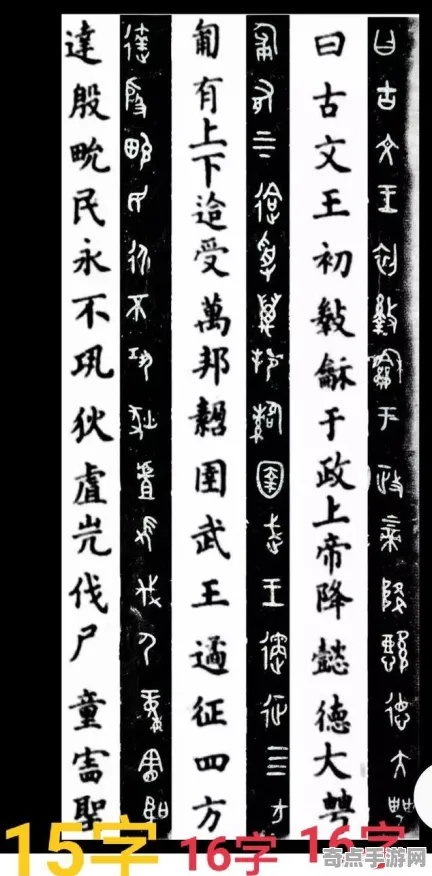 曰古文王初龢于政上帝降懿德大
匍有上下迨受萬邦圉武王遹征四方
達殷民永不巩狄虘伐尸童聖
15字 16字 16字
奇点手游网